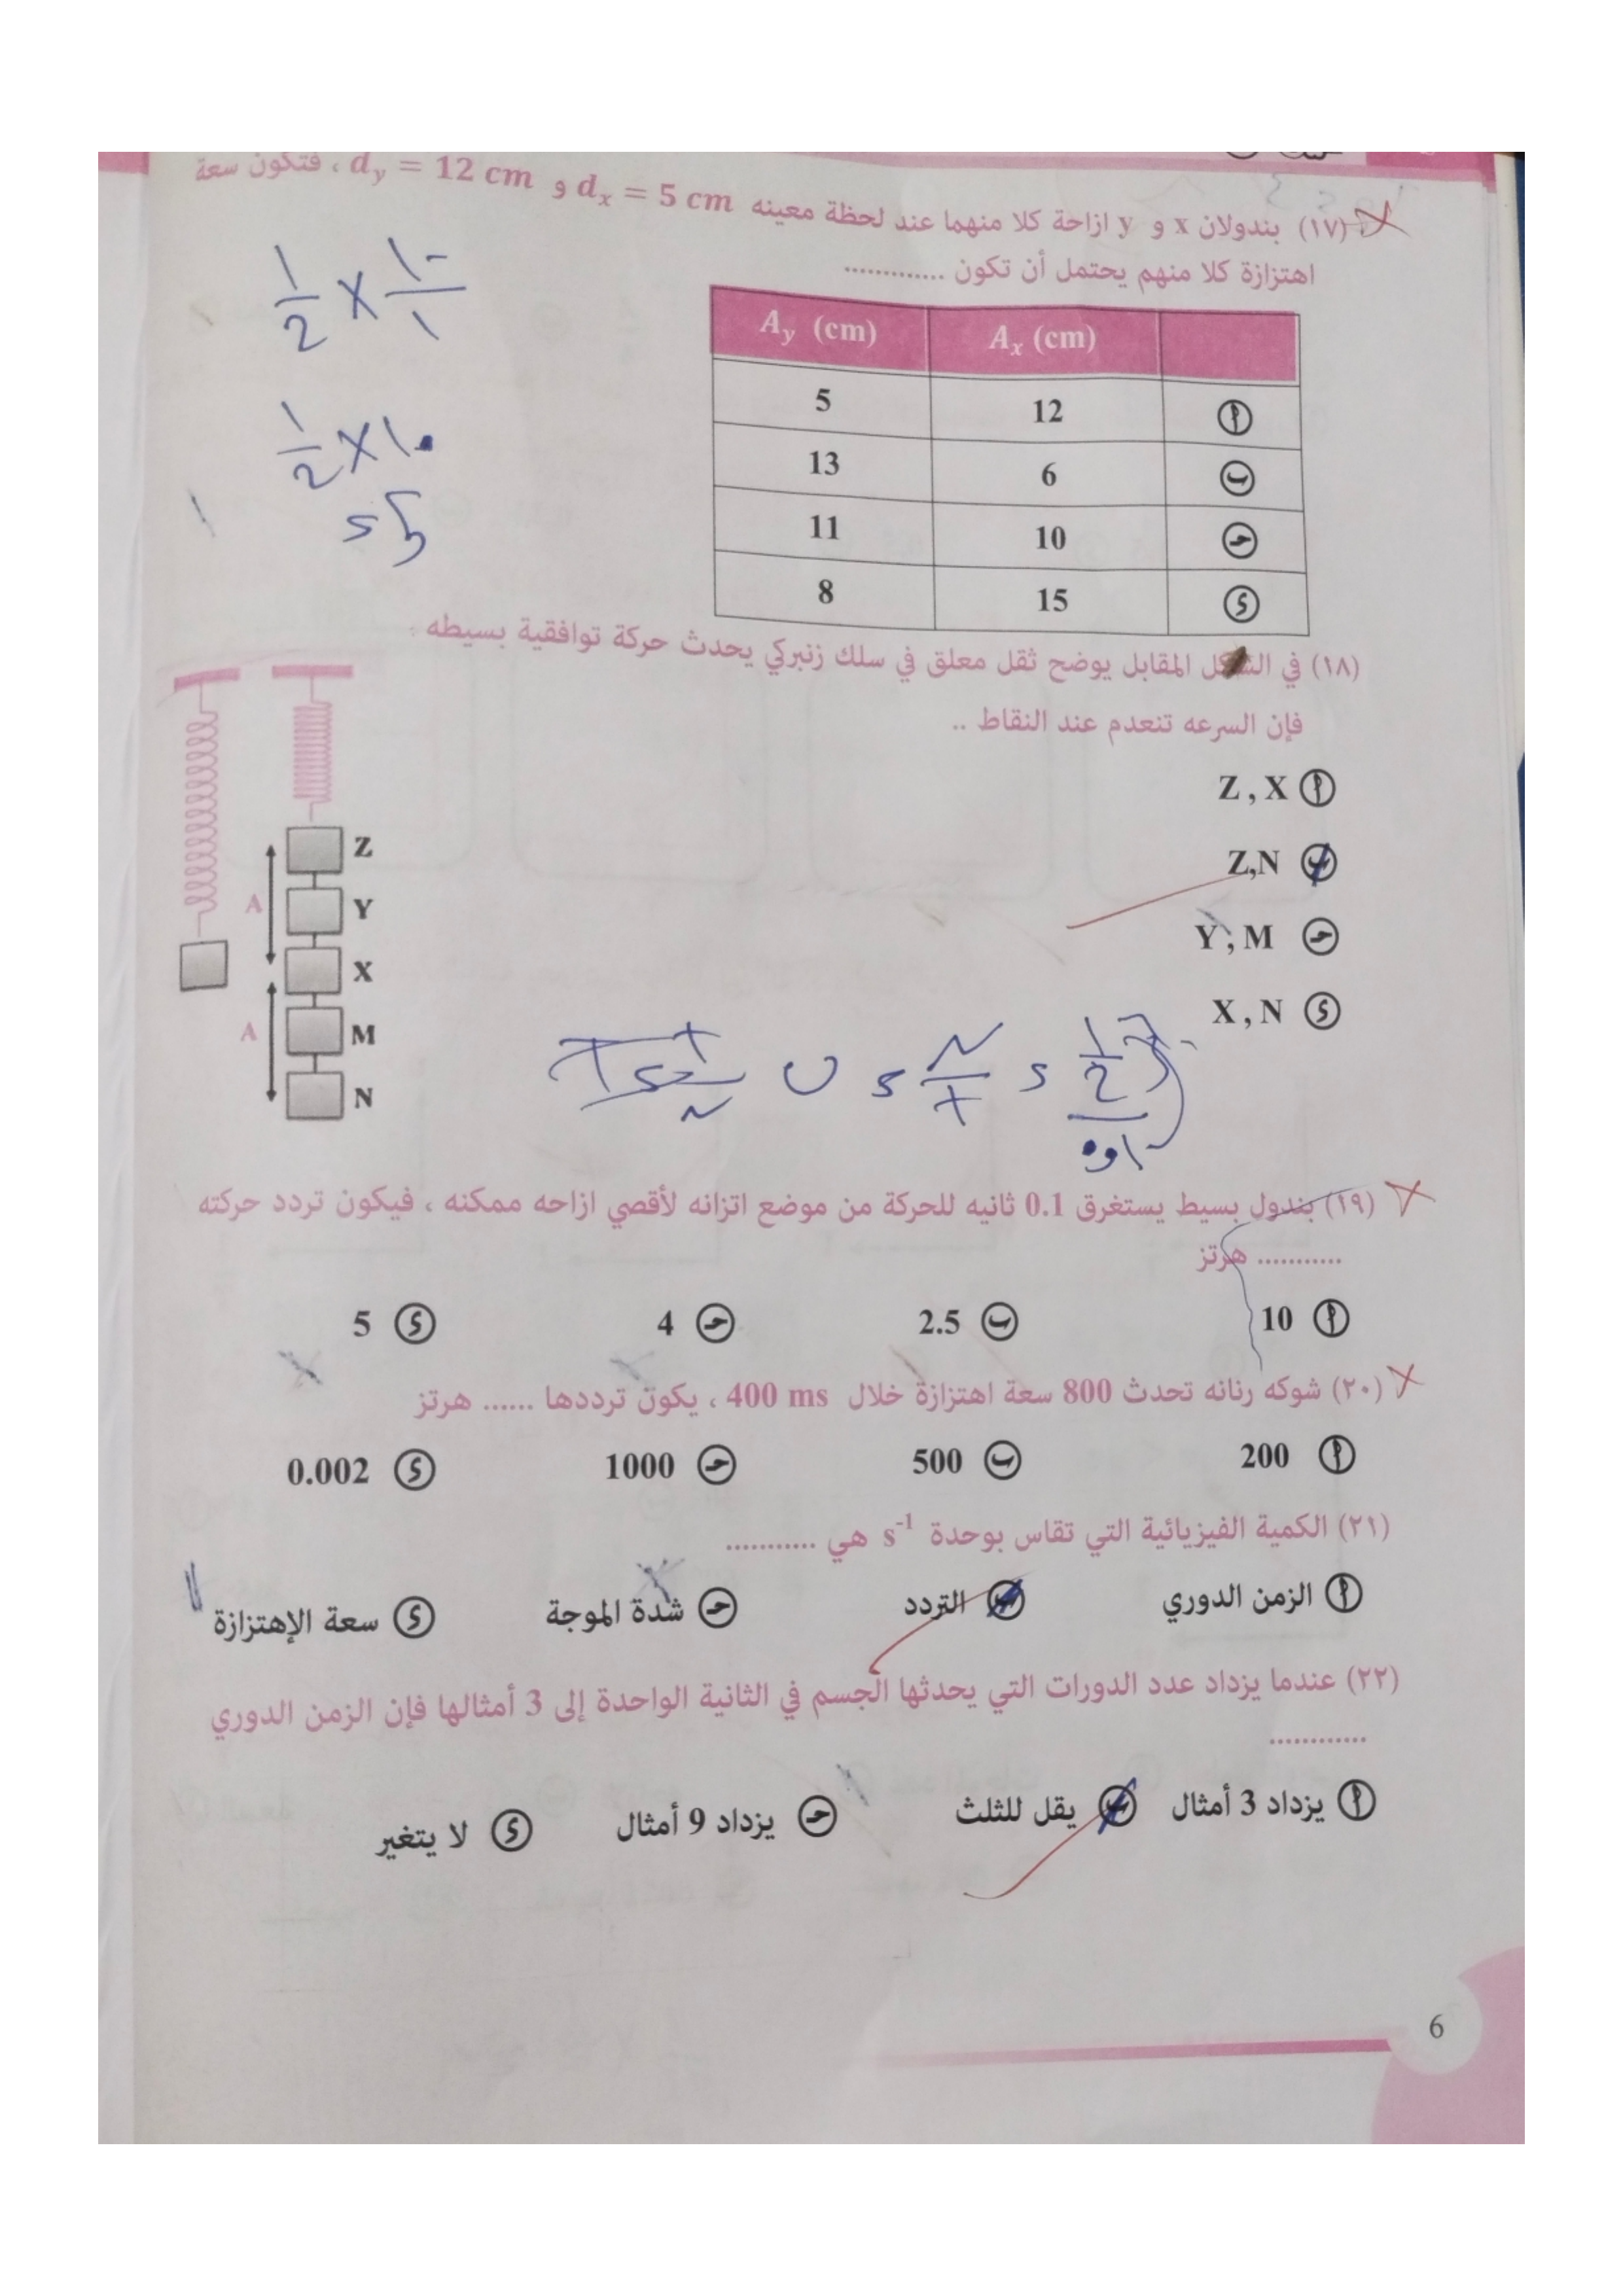 (١٧) بندولان x و y ازاحة كلا منهما عند لحظة معينه dx = 5 cm و dy = 12 cm ، فتكون سعة
اهتزازة كلا منهم يحتمل أن تكون .............
Ax (cm) Ay (cm)
أ 12 5
ب 6 13
ج 10 11
د 15 8
1/2 × ١٠/١
1/2 × ١٠
(١٨) في الشكل المقابل يوضح ثقل معلق في سلك زنبركي يحدث حركة توافقية بسيطه :
فإن السرعه تنعدم عند النقاط ..
أ Z , X
ب Z,N
ج Y , M
د X , N
Z
Y
X
M
N
A
A
(١٩) بندول بسيط يستغرق 0.1 ثانيه للحركة من موضع اتزانه لأقصي ازاحه ممكنه ، فيكون تردد حركته
............ هرتز
أ 10 ب 2.5 ج 4 د 5
(٢٠) شوكه رنانه تحدث 800 سعة اهتزازة خلال 400 ms ، يكون ترددها ...... هرتز
أ 200 ب 500 ج 1000 د 0.002
(٢١) الكمية الفيزيائية التي تقاس بوحدة s-1 هي ...........
أ الزمن الدوري ب التردد ج شدة الموجة د سعة الإهتزازة
(٢٢) عندما يزداد عدد الدورات التي يحدثها الجسم في الثانية الواحدة إلى 3 أمثالها فإن الزمن الدوري
............
أ يزداد 3 أمثال ب يقل للثلث ج يزداد 9 أمثال د لا يتغير
6